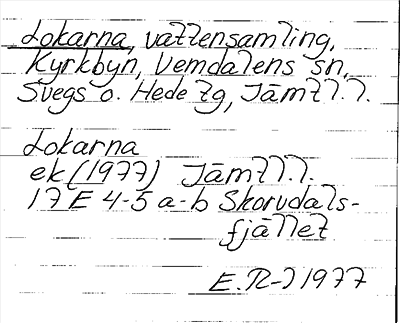 Lokarna, vattensamling,
Kyrkbyn, Vemdalens sn,
Svegs o. Hede tg, Jämtl.l.
Lokarna
ek (1977) Jämtl.l.
17 E 4-5 a-b Skorvdals-
fjället
E.R-l 1977